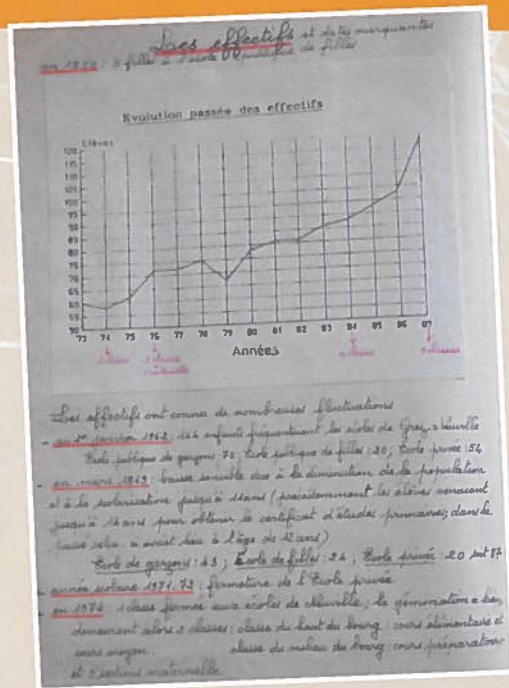 Les effectifs et dates marquantes
en 1850 : 8 filles à l'école publique de filles
Evolution passée des effectifs
Elèves
120
115
110
105
100
95
90
85
80
75
70
65
60
55
50
73 74 75 76 77 78 79 80 81 82 83 84 85 86 87
Années
Les effectifs ont connu de nombreuses fluctuations
- au 1er janvier 1962 : 144 enfants fréquentaient les écoles de Grez-Neuville
Ecole publique de garçons : 70 ; Ecole publique de filles : 20 ; Ecole privée : 54
- en mars 1969 : baisse sensible due à la diminution de la population
et à la scolarisation jusqu'à 11 ans (précédemment les élèves venaient
jusqu'à 14 ans pour obtenir le certificat d'études primaires, dans le
passé cela avait lieu à l'âge de 12 ans)
Ecole de garçons : 43 ; Ecole de filles : 24 ; Ecole privée : 20 soit 87
- année scolaire 1971.72 : fermeture de l'Ecole privée
- en 1974 : 1 classe fermée aux écoles de Neuville, la gémination a lieu,
demeurent alors 2 classes : classe du haut du bourg : cours élémentaire et
cours moyen. classe du milieu du bourg : cours préparatoire
et sections maternelle